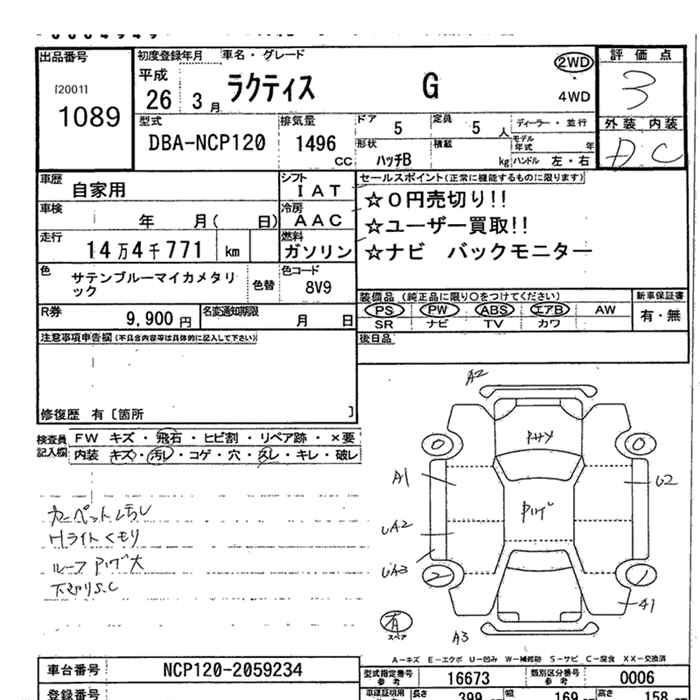 出品番号
[2001]
1089
初度登録年月 車名・グレード
平成
26 3月 ラクティス G
2WD
4WD
評価点
3
型式
DBA-NCP120
排気量
1496
CC
ドア
5
定員
5人
ディーラー・並行
形状
ハッチB
積載
kg
モデル年式 年
ハンドル 左・右
外装 内装
D C
車歴
自家用
シフト
IAT
車検
年 月( 日)
冷房
AAC
走行
14万4千771 km
燃料
ガソリン
色
サテンブルーマイカメタリック
色替
色コード
8V9
R券
9,900円
名変通知期限
月 日
セールスポイント(正常に機能するものに限ります)
☆0円売切り!!
☆ユーザー買取!!
☆ナビ バックモニター
装備品 (純正品に限り○をつけてください)
新車保証書
PS PW ABS エアB AW
SR ナビ TV カワ
有・無
後日品
注意事項申告欄(不具合内容等は具体的に記入して下さい)
修復歴 有〔箇所 〕
検査員記入欄
FW キズ・飛石・ヒビ割・リペア跡・×要
内装 キズ・汚レ・コゲ・穴・スレ・キレ・破レ
カーペット汚レ
Hライトくもり
ルーフ 大
下廻りS.C
A2
A1
U2
UA2
UA3
2
A1
A3
0
0
1
有
スペア
A-キズ E-エクボ U-凹み W-補修跡 S-サビ C-腐食 XX-交換済
車台番号
NCP120-2059234
登録番号
型式指定番号
参考
16673
類別区分番号
参考
0006
車検証明用
長さ
399
幅
169
高さ
158